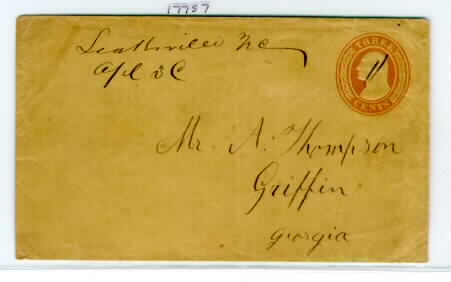 17757
Leaksville NC
Apl 30
THREE
CENTS
Mr. A. Thompson
Griffin
Georgia